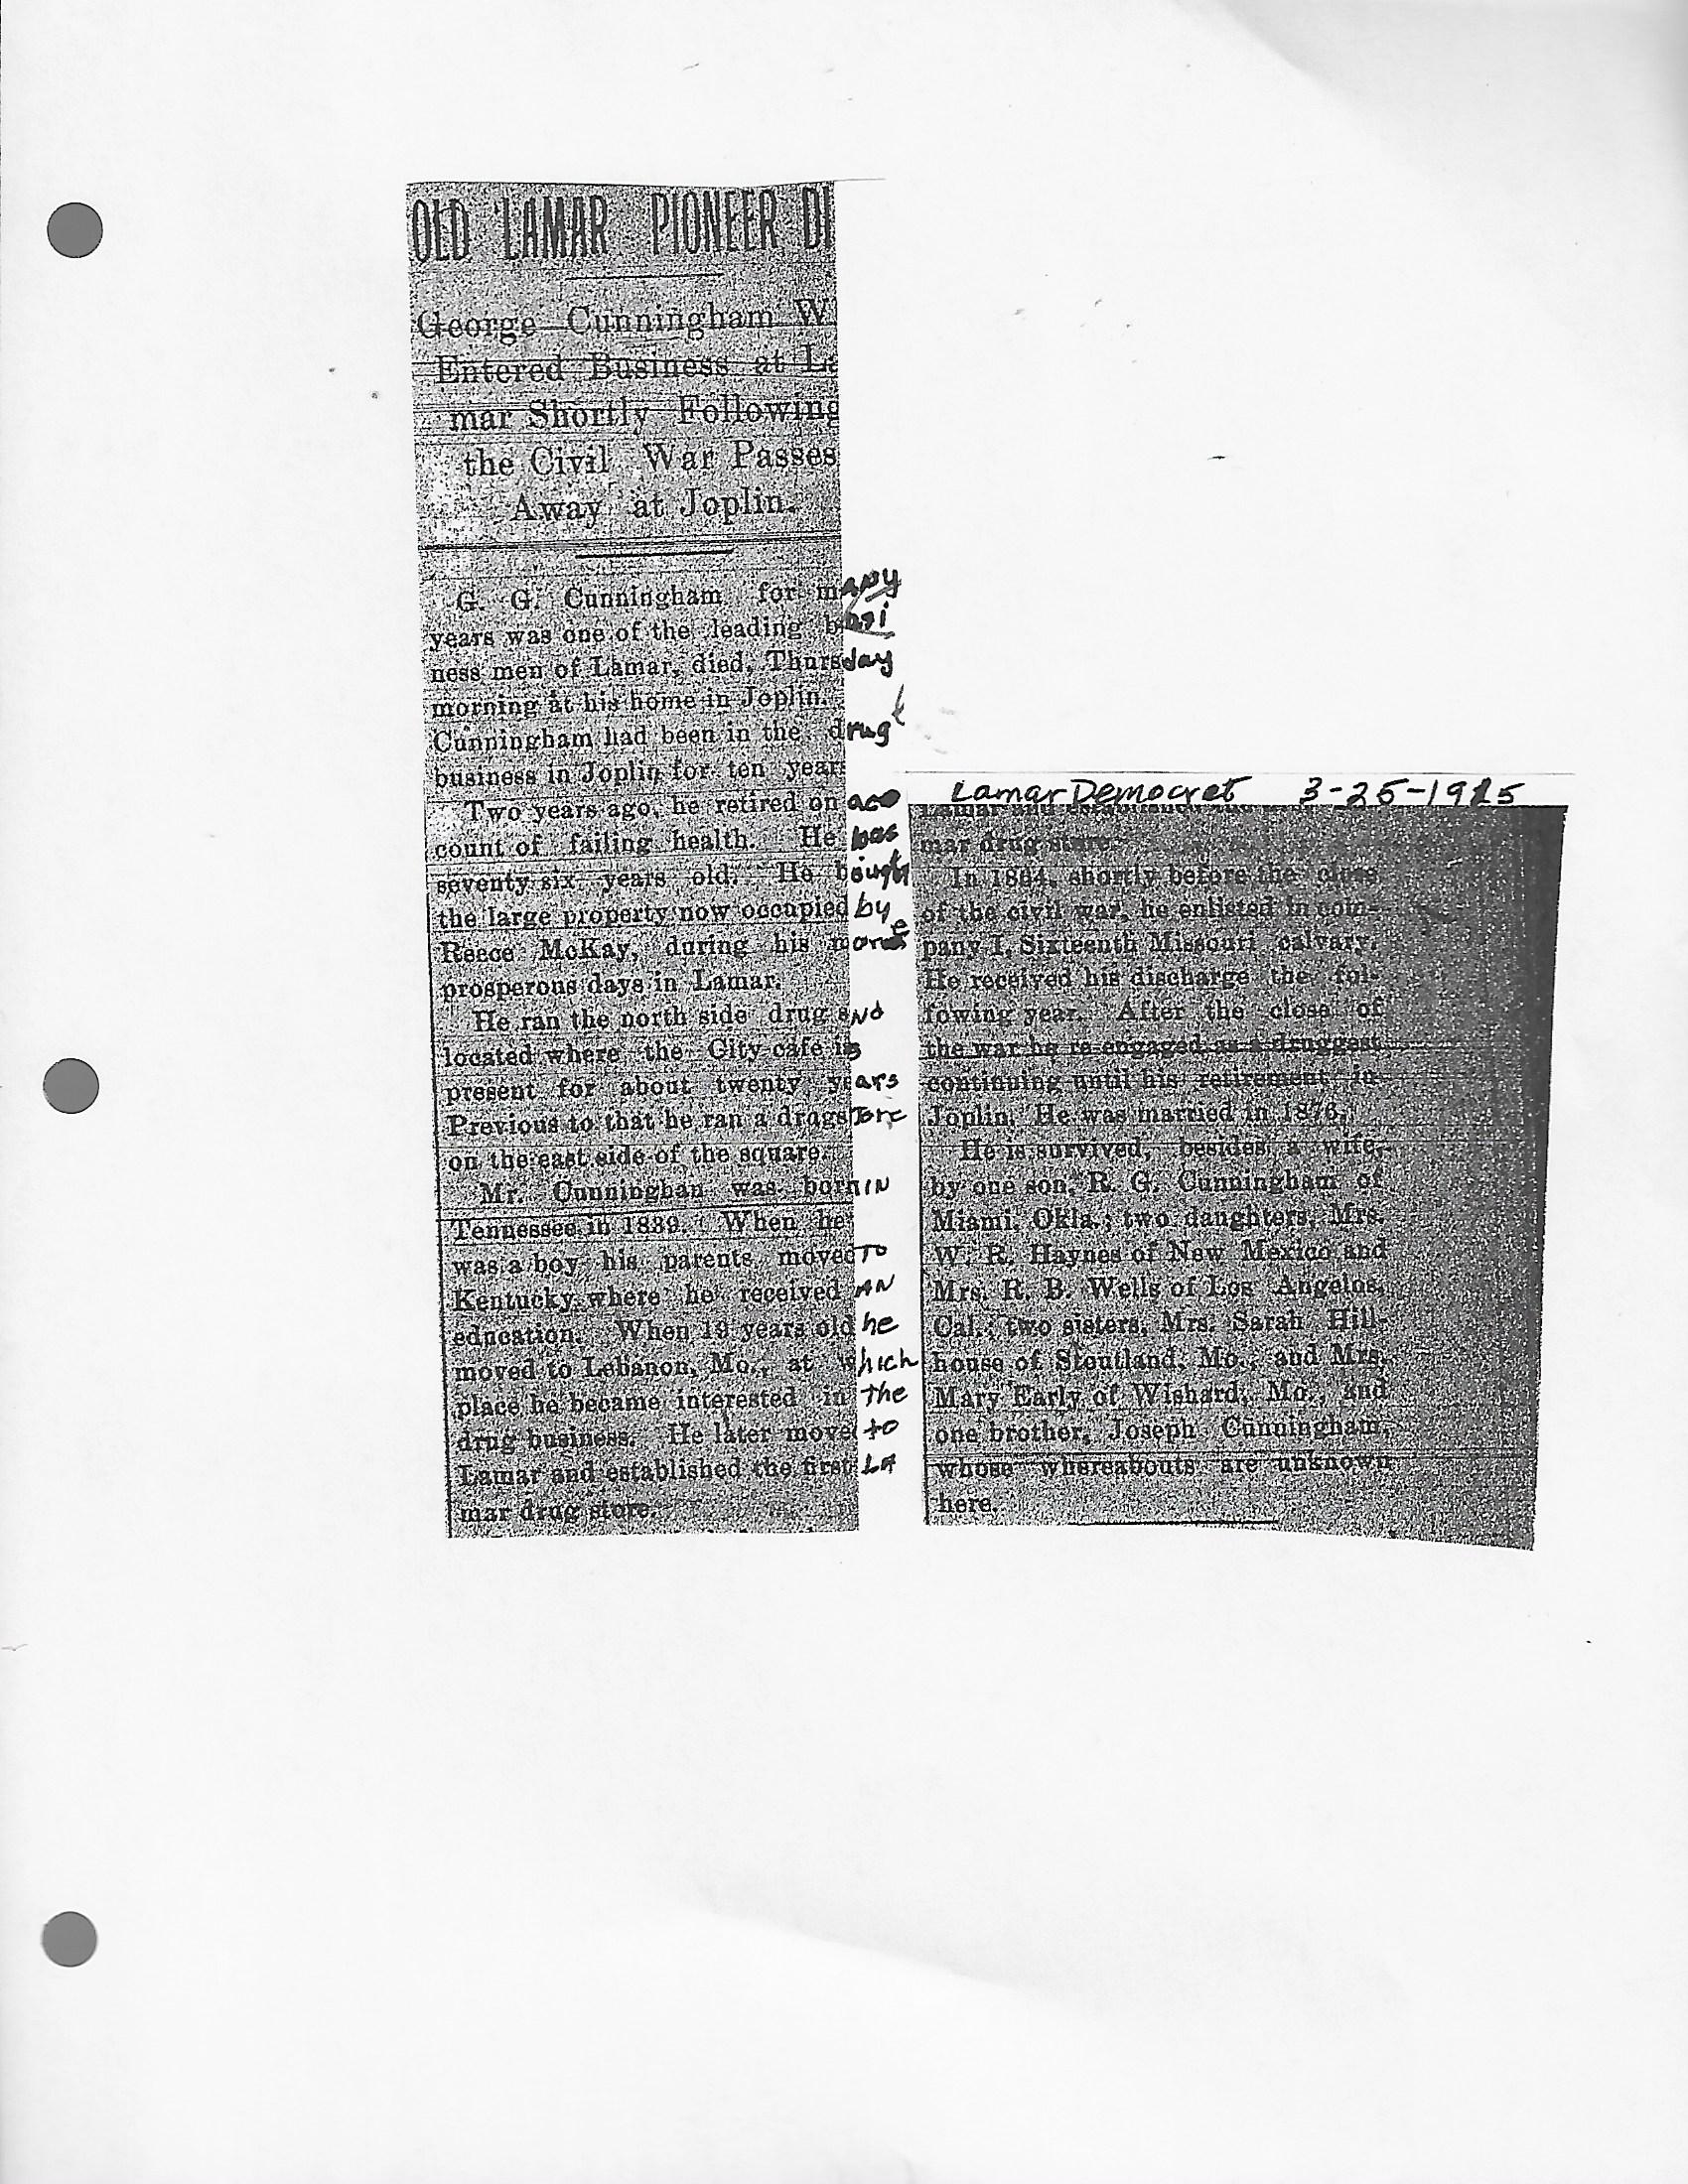 OLD LAMAR PIONEER DI
George Cunningham W
Entered Business at La
mar Shortly Following
the Civil War Passes
Away at Joplin.
G. G. Cunningham for many
years was one of the leading busi
ness men of Lamar, died, Thursday
morning at his home in Joplin.
Cunningham had been in the drug
business in Joplin for ten year
Two years ago, he retired on aco
count of failing health. He was
seventy six years old. He bought
the large property now occupied by
Reece McKay, during his more
prosperous days in Lamar.
He ran the north side drug and
located where the City cafe is
present for about twenty years
Previous to that he ran a drugstore
on the east side of the square.
Mr. Cunninghan was born IN
Tennessee in 1839. When he
was a boy his parents moved TO
Kentucky where he received AN
education. When 19 years old he
moved to Lebanon, Mo., at which
place he became interested in the
drug business. He later move to
Lamar and established the first La
mar drug store.
Lamar Democret 3-25-1915
Lamar and established
mar drug store.
In 1864, shortly before the close
of the civil war, he enlisted in com-
pany I, Sixteenth Missouri calvary.
He received his discharge the fol-
fowing year. After the close of
the war he re-engaged as a druggest
continuing until his retirement in
Joplin. He was married in 1876.
He is survived, besides a wife,
by one son, R. G. Cunningham of
Miami, Okla.; two daughters, Mrs.
W. R. Haynes of New Mexico and
Mrs. R. B. Wells of Los Angelos,
Cal.; two sisters, Mrs. Sarah Hill-
house of Stoutland, Mo., and Mrs.
Mary Early of Wishard, Mo., and
one brother, Joseph Cunningham,
whose whereabouts are unknown
here.